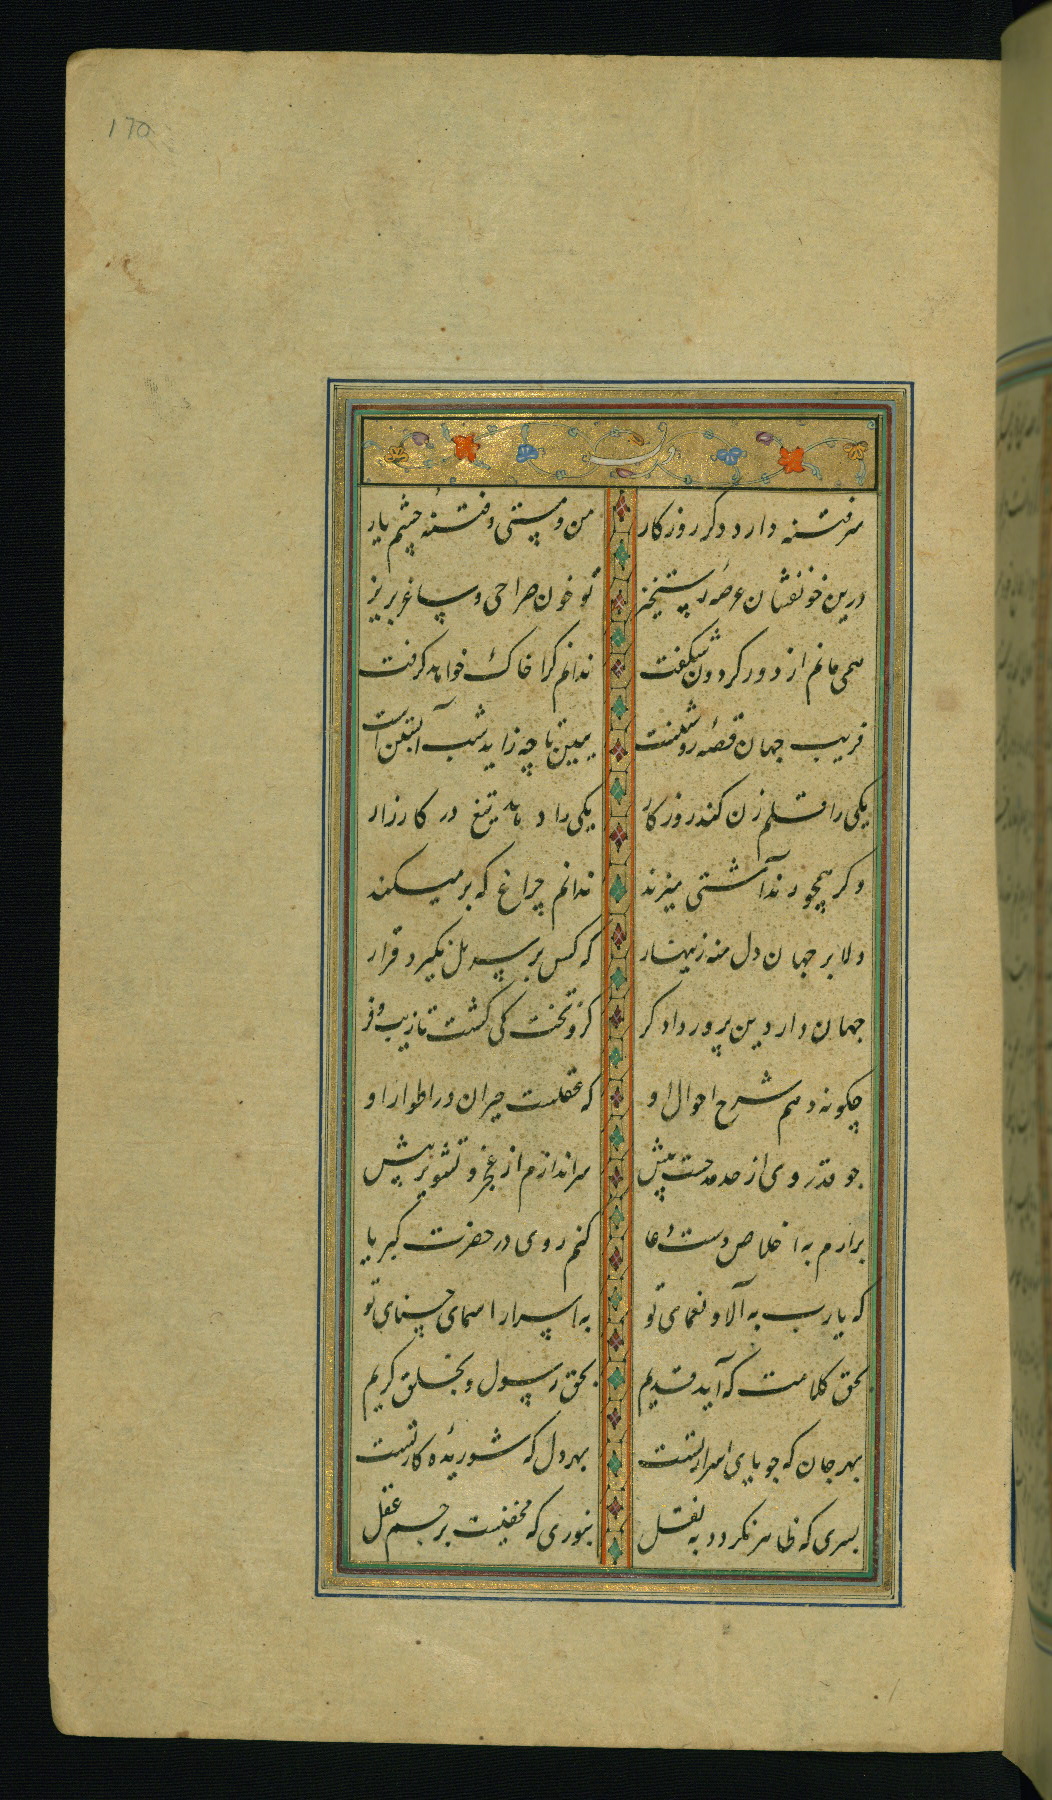 170
سر فتنه دارد دگر روزگار من و مستی و فتنهٔ چشم یار
درین خونفشان عرصهٔ رستخیز تو خون صراحی و ساغر بریز
همی مانم از دور گردون شگفت ندانم کرا خاک خواهد گرفت
فریب جهان قصهٔ روشنست ببین تا چه زاید شب آبستن است
یکی را قلم زن کند روزگار یکی را دهد تیغ در کارزار
وگر همچو رندآتشی میزند ندانم چراغ که بر میکند
دلا بر جهان دل منه زینهار که کس بر سر پل نگیرد قرار
جهان دار دین پرور دادگر کزو تخت کی گشت تا زیب و فر
چگونه دهم شرح احوال او که عقلست حیران در اطوار او
چو قدر وی از حد مدحت بیش سر اندازم از عجز و تشویر پیش
برارم به اخلاص دست دعا کنم روی در حضرت کبریا
که یارب به آلا و نعمای تو به اسرار اسمای حسنای تو
بحق کلامت که آید قدیم بحق رسول و بخلق کریم
بهر جان که جویای اسرار تست بهر دل که شوریده کار تست
بسری که ظاهر نکردد به نقل بنوری که مخفیست بر جسم عقل